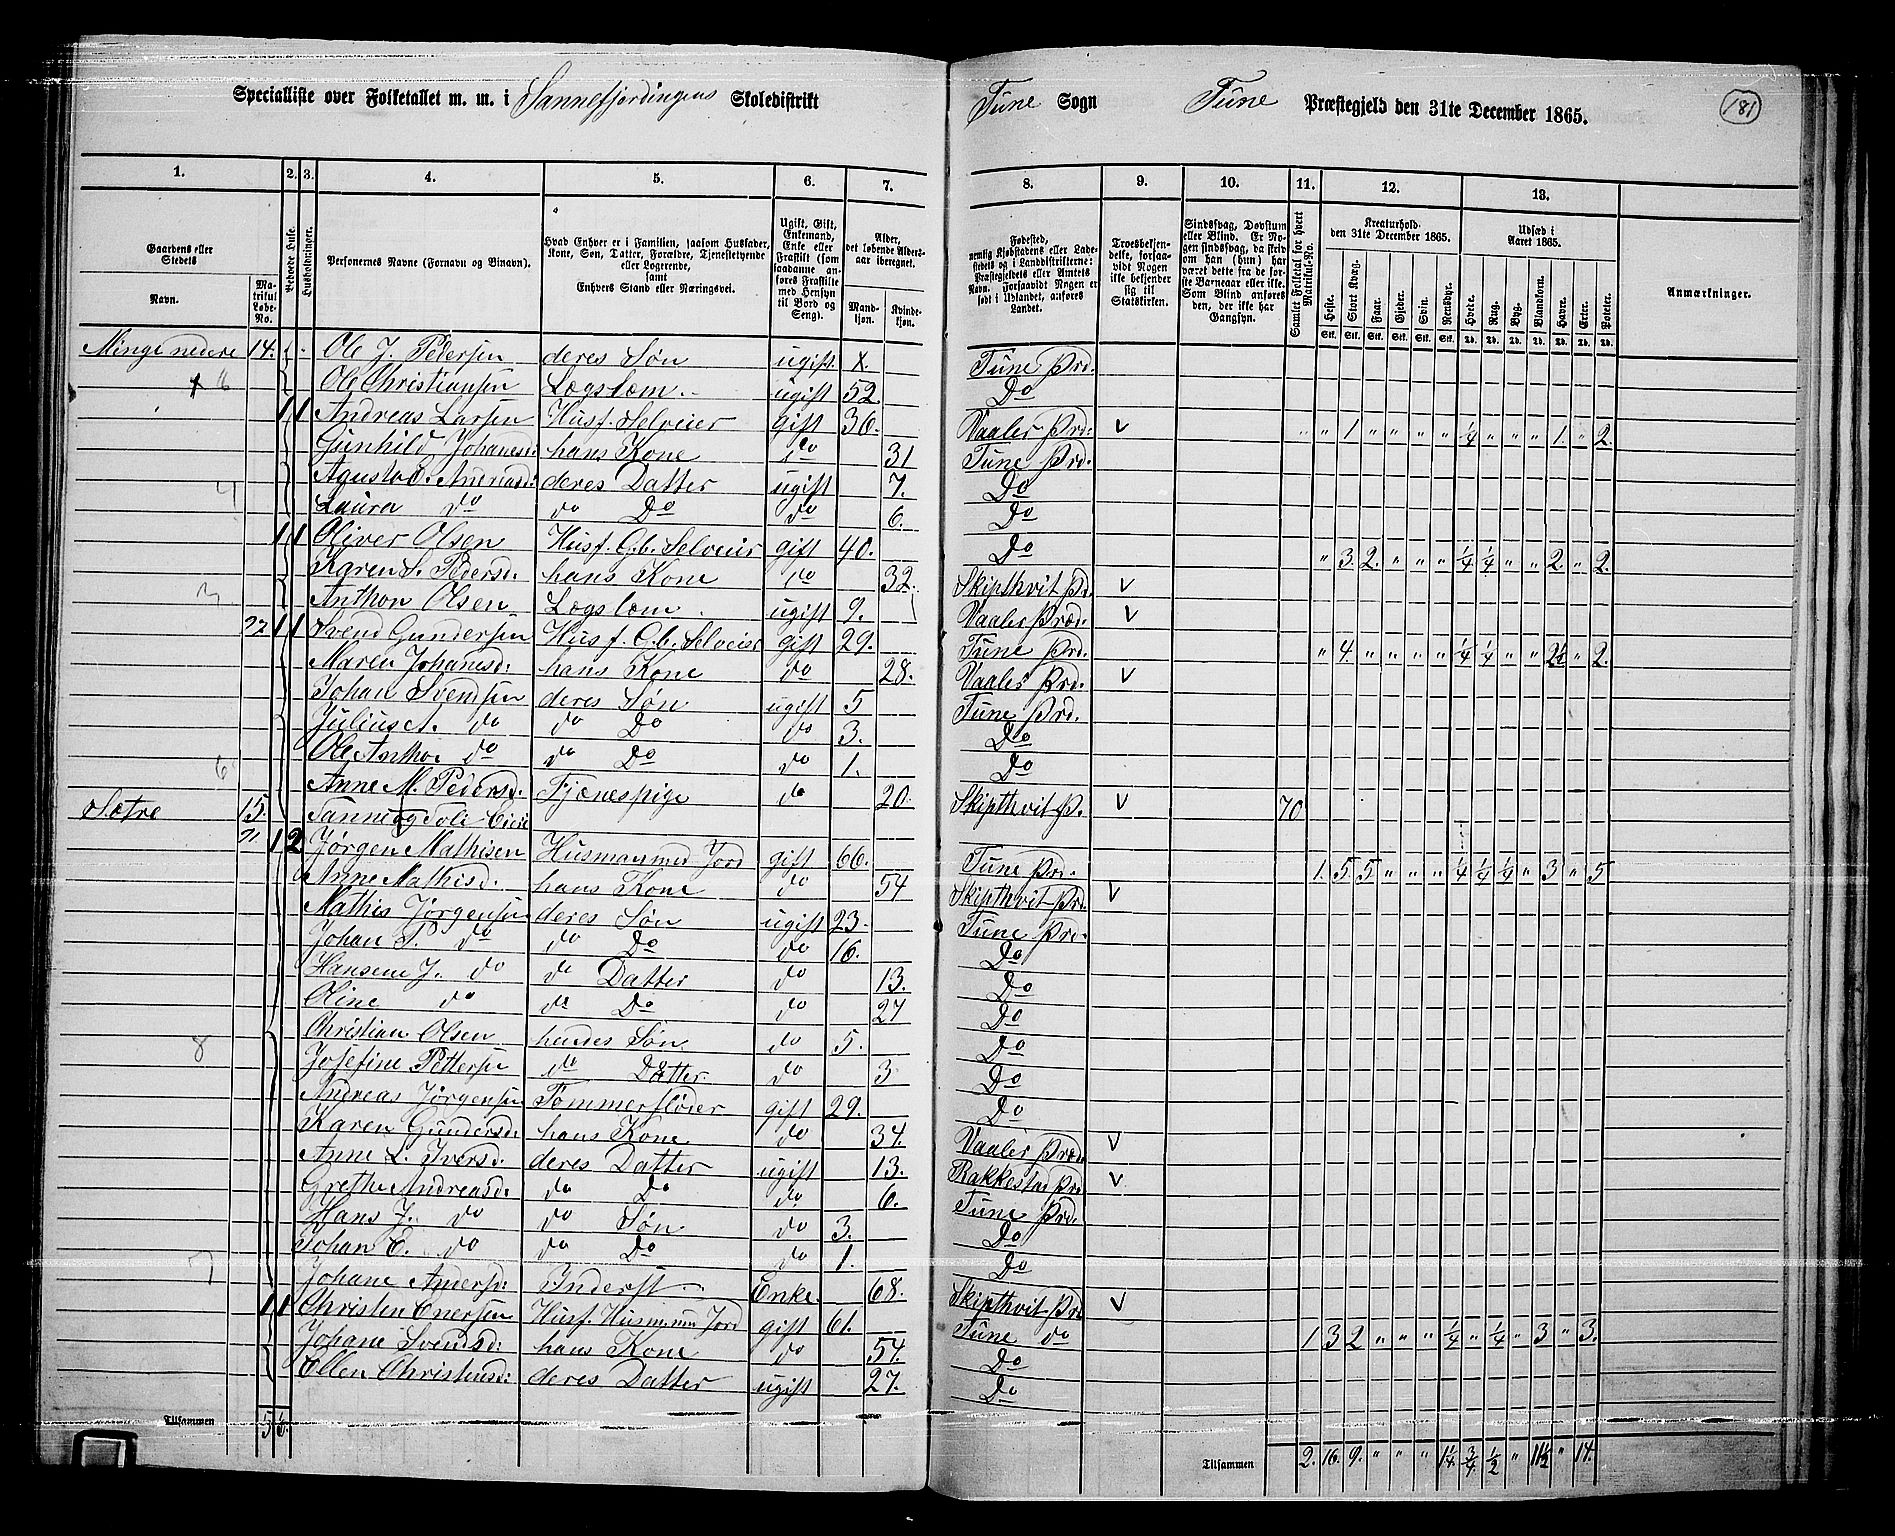 Specialliste over Folketallet m. m. i Sannefjordingens Skoledistrikt Tune Sogn Tune Præstegjeld den 31te December 1865. 181
1. 2. 3. 4. 5. 6. 7. 8. 9. 10. 11. 12. 13.
Gaardens eller Stedets Navn. Matrikul Løbe-No. Beboede Huse. Husholdninger. Personernes Navne (Fornavn og Binavn). Hvad Enhver er i Familien, saasom Husfader, Kone, Søn, Datter, Forældre, Tjenestetyende eller Logerende, samt Enhvers Stand eller Næringsvei. Ugift, Gift, Enkemand, Enke eller Fraskilt (som saadanne anføres Fraskilte med Hensyn til Bord og Seng). Alder, det løbende Aldersaar iberegnet. Mandkjøn. Kvindekjøn.
Fødested, nemlig Kjøbstadens eller Ladestedets og i Landdistrikterne: Præstegjeldets eller Amtets Navn. Forsaavidt Nogen er født i Udlandet, anføres Landet. Troesbekjendelse, forsaavidt Nogen ikke bekjender sig til Statskirken. Sindssvag, Døvstum eller Blind. Er Nogen sindssvag, da skriv om han (hun) har været dette fra de første Barneaar eller ikke. Som Blind anføres den, der ikke har Gangsyn. Samlet Folketal for hvert Matrikul-No. Kreaturhold den 31te December 1865. Udsæd i Aaret 1865. Anmærkninger.
Heste. Stort Kvæg. Faar. Gjeder. Svin. Rensdyr. Hvede. Rug. Byg. Blandkorn. Havre. Erter. Poteter.
Stk. Stk. Stk. Stk. Stk. Stk. Td. Td. Td. Td. Td. Td. Td.
Minge nedere 14. Ole J. Pedersen deres Søn ugift. Tune Prd.
Ole Christiansen Lægslem ugift 52 Do
1 1 Andreas Larsen Husf. Selveier gift 36. Vaaler Prd. v " 1 " " " " ¼ " " " 1. " 2.
Gunhild Johanesd: hans Kone do 31 Tune Prd.
deres Datter ugift 7. Do
4 Laura do do Do do 6. Do
1 1 Oliver Olsen Husf. G.b. Selveier gift 40. Do " 3. 2. " " " ¼ ¼ " " 2. " 2.
Karen S. Pedersd. hans Kone do 32. Skipthvit Pd. v
3 Anthon Olsen Lægslem ugift 9. Vaaler Præd. v
22 1 1 Svend Gundersen Husf. G.b. Selveier gift 29. Tune Prd. " 4. " " " " ¼ ¼ " " 2½ " 2.
Maren Johanesd: hans Kone do 28. Vaaler Prd. v
Johan Svendsen deres Søn ugift 5 Tune Prd.
do do Do do 3. Do
6 Ole Antho. do do Do do 1. Do
Anne M. Pedersd. Tjenespige do 20. Skipthvit P. v 70
Sætre 15.
21 1 2 Jørgen Mathisen Husman med Jord gift 66. Tune Prd. 1. 5 5 " " " ¼ ¼ ¼ " 3 " 5
Anne Mathisd. hans Kone do 54 Skipthvit Prd. v
Mathis Jørgensen deres Søn ugift 23. Tune Prd.
Johan P. do do Do do 16. Do
Hansene J. do do Datter do 13. Do
Oline do do Do do 27 Do
Christian Olsen hendes Søn do 5. Do
8 Josefine Pettersen do Datter. do 3 Do
Andreas Jørgensen Tømmerfløder gift 29. Do
Karen Gundersd. hans Kone do 34. Vaaler Præd. v
Anne L. Iversd. deres Datter ugift 13. Rakkestad Prd v
Grethe Andreasd. do Do do. 6. Tune Prd.
Hans J. do do Søn do 3. Do
7 Johan C. do do Do do 1. Do
Johane Andersd: Inderst Enke. 68. Skipthvit Prd v
1 1 Christen Enersen Husf. Husm. med Jord gift 61. Tune do 1 3 2 " " " ¼ " ¼ " 3 " 3.
Johane Svendsd: hans Kone do 54. Do
Ellen Christensd: deres Datter ugift 27. Do
Tilsammen 5 6. Tilsammen 2. 16. 9. " " " 1¼. ¾ ½ " 11½ " 14.